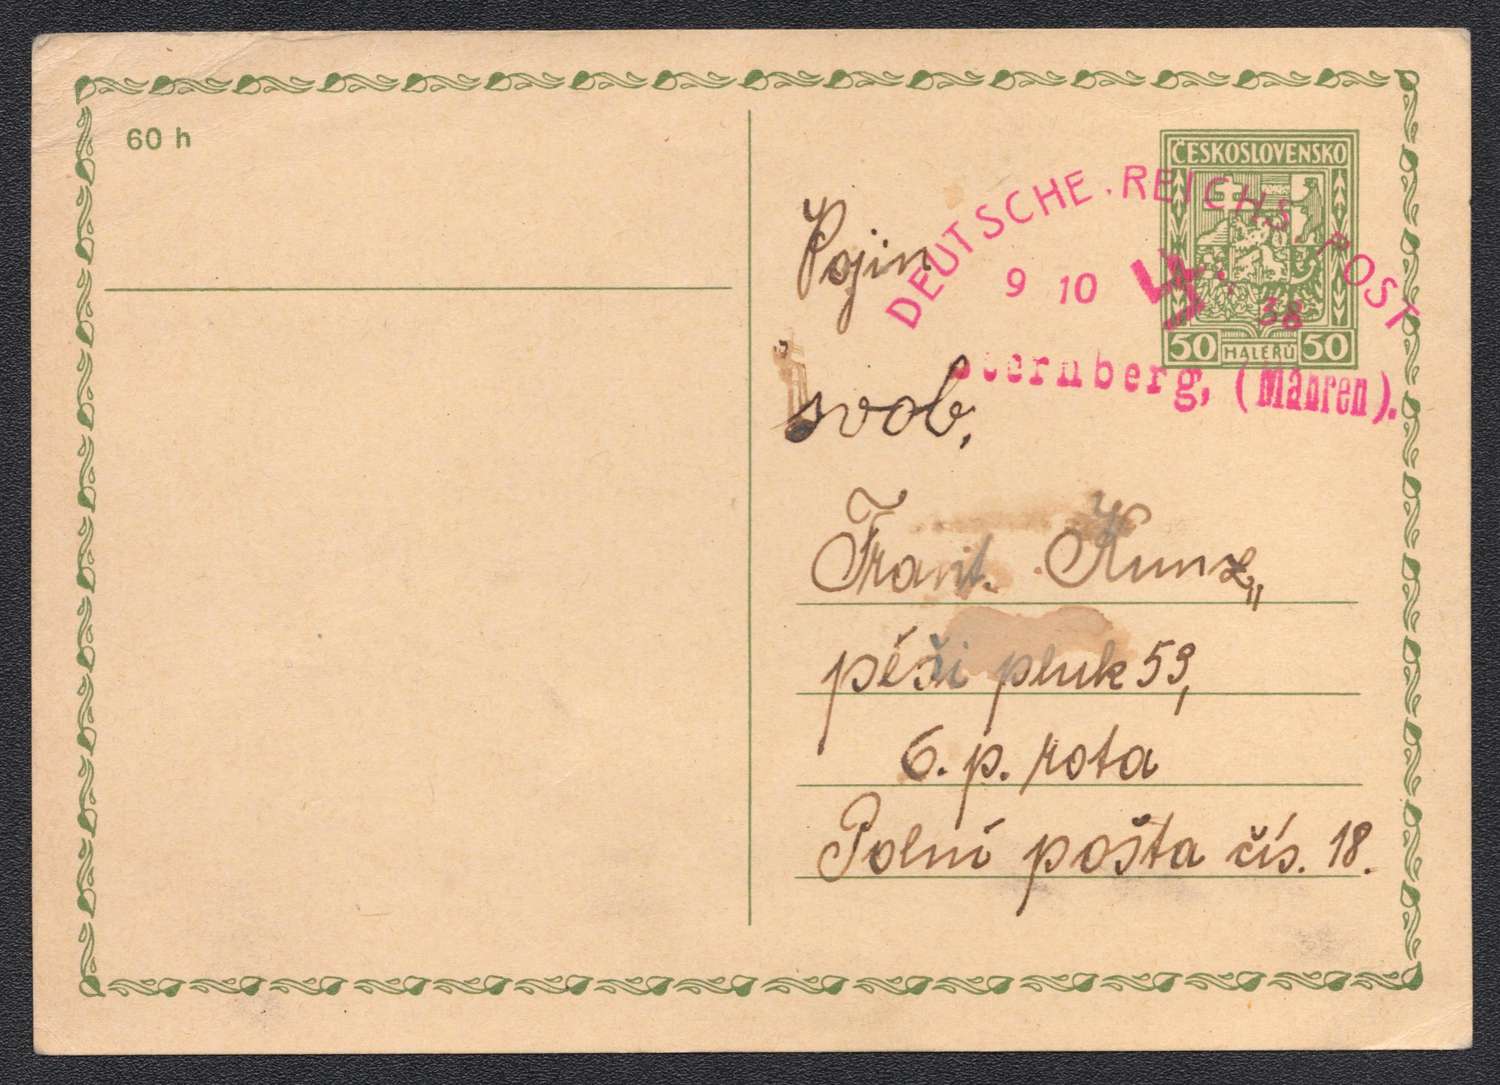 60 h
ČESKOSLOVENSKO
DEUTSCHE. REICHS. POST
9 10 38
50 HALÉŘŮ 50
Sternberg, (Mähren).
Vojín
svob,
Frant. Kunz,,
pěší pluk 59,
6. p. rota
Polní pošta čís. 18.